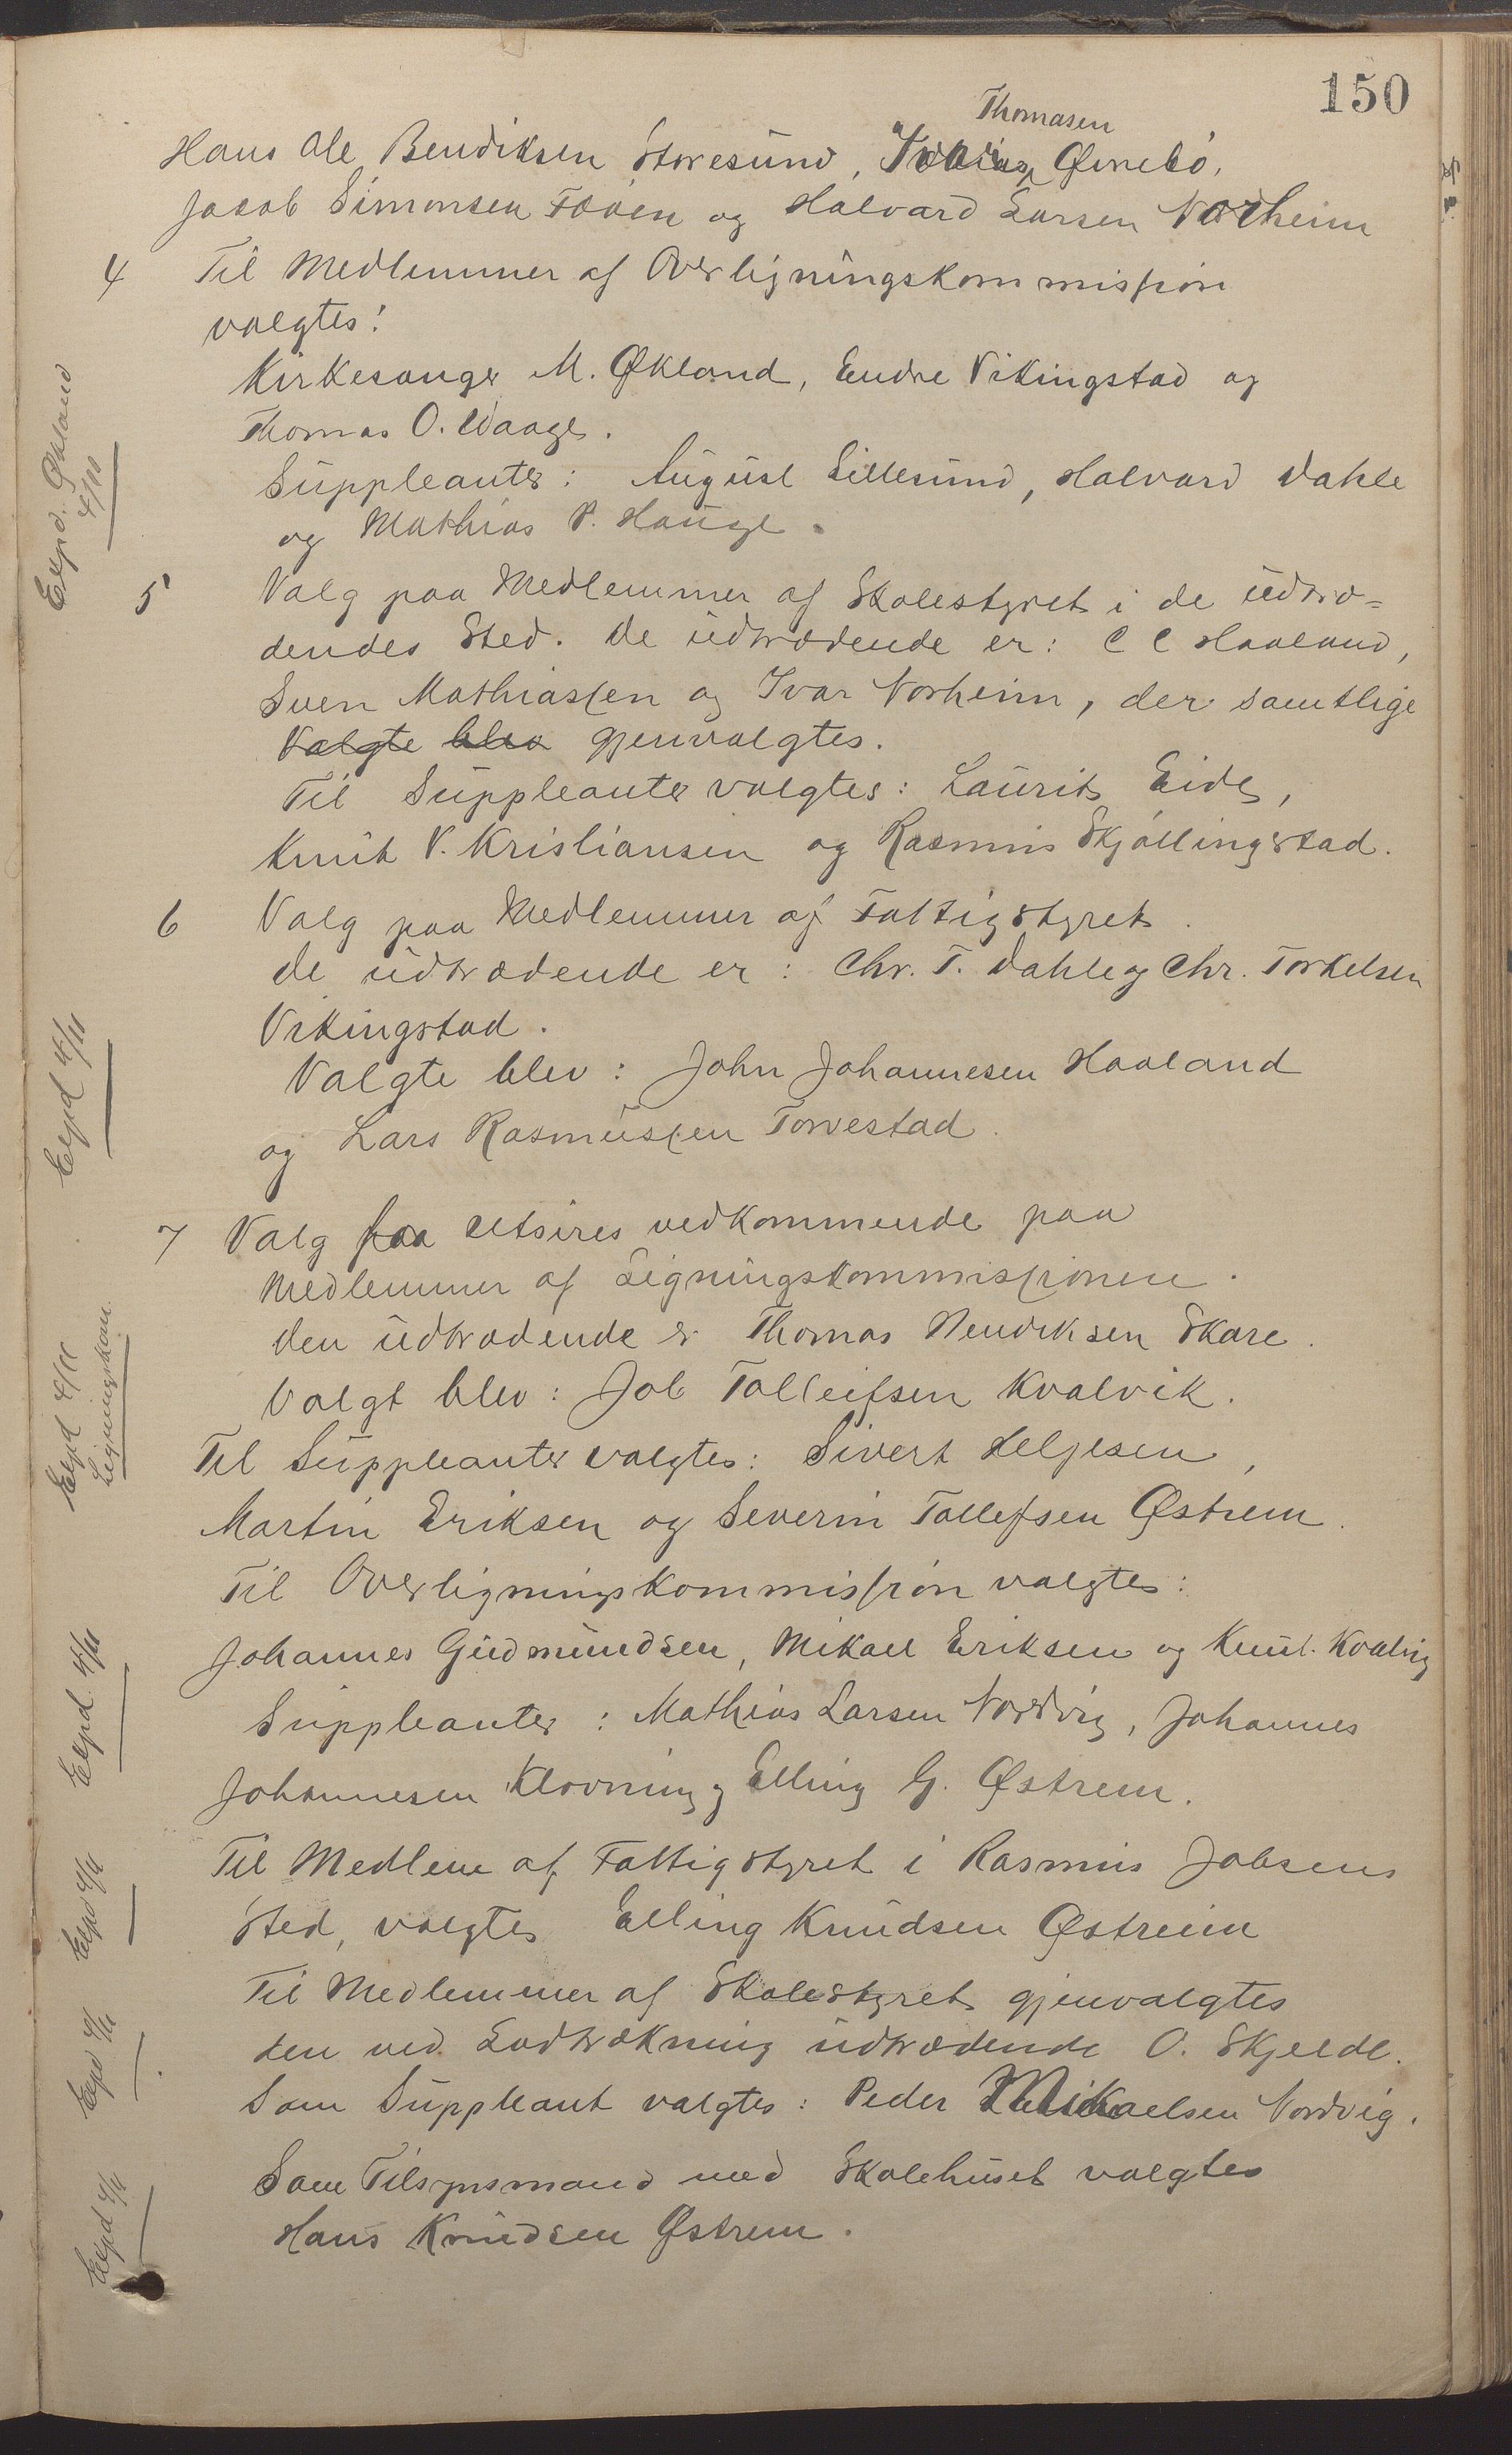 150
Thomasen
Hans Ole Bendiksen Storesund, Tobias Øvrebö,
Jakob Simonsen Føöen og Halvard Larsen Norheim
4 Til Medlemmer af Overligningskommission
valgtes:
Kirkesanger M. Økland, Endre Vikingstad og
Thomas O. Waage.
Suppleanter: August Lillesund, Halvard Dahle
og Mathias P. Hauge.
Expd. Økland
4/11
5 Valg paa Medlemmer af Skolestyret i de udtræ=
dendes Sted. De udtrædende er: C C Haaland,
Sven Mathiassen og Ivar Norheim, der samtlige
Valgte blev gjenvalgtes.
Til Suppleanter valgtes: Laurits Eide,
Knut V. Kristiansen og Rasmus Skjöllingstad.
6 Valg paa Medlemmer af Fattigstyret.
De udtrædende er: Chr. T. Dahle og Chr. Torkelsen
Vikingstad.
Valgte blev: John Johannesen Haaland
og Lars Rasmussen Torvestad.
Expd 4/11
7 Valg for Utsires vedkommende paa
Medlemmer af Ligningskommissionen.
Den udtrædende er Thomas Hendriksen Skare.
Valgt blev: Job Tolleifsen Kvalvik.
Expd 4/11
Ligningskom.
Til Suppleanter valgtes: Sivert Helgesen,
Martin Eriksen og Severin Tollefsen Østrem.
Til Overligningskommission valgtes:
Johannes Gudmundsen, Mikael Eriksen og Knut Kvalvig
Expd. 4/11
Suppleanter: Mathias Larsen Nordvig, Johannes
Johannesen Klovning og Elling G. Østrem.
Til Medlem af Fattigstyret i Rasmus Jobsens
Sted, valgtes Elling Knudsen Østreim
Expd 4/11
Til Medlemmer af Skolestyret gjenvalgtes
den ved Lodtrækning udtrædende O. Skjelde.
Expd 4/11
Som Suppleant valgtes: Peder Mikaelsen Nordvig.
Som Tilsynsmand med Skolehuset valgtes
Hans Knudsen Østrem.
Expd 4/11